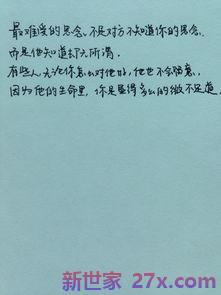 最难受的思念。不是对方不知道你的思念.
而是他知道却无所谓.
有些人无论你怎么对他好,他也不会留意,
因为他的生命里,你是显得多么的微不足道.
新世家 27x.com